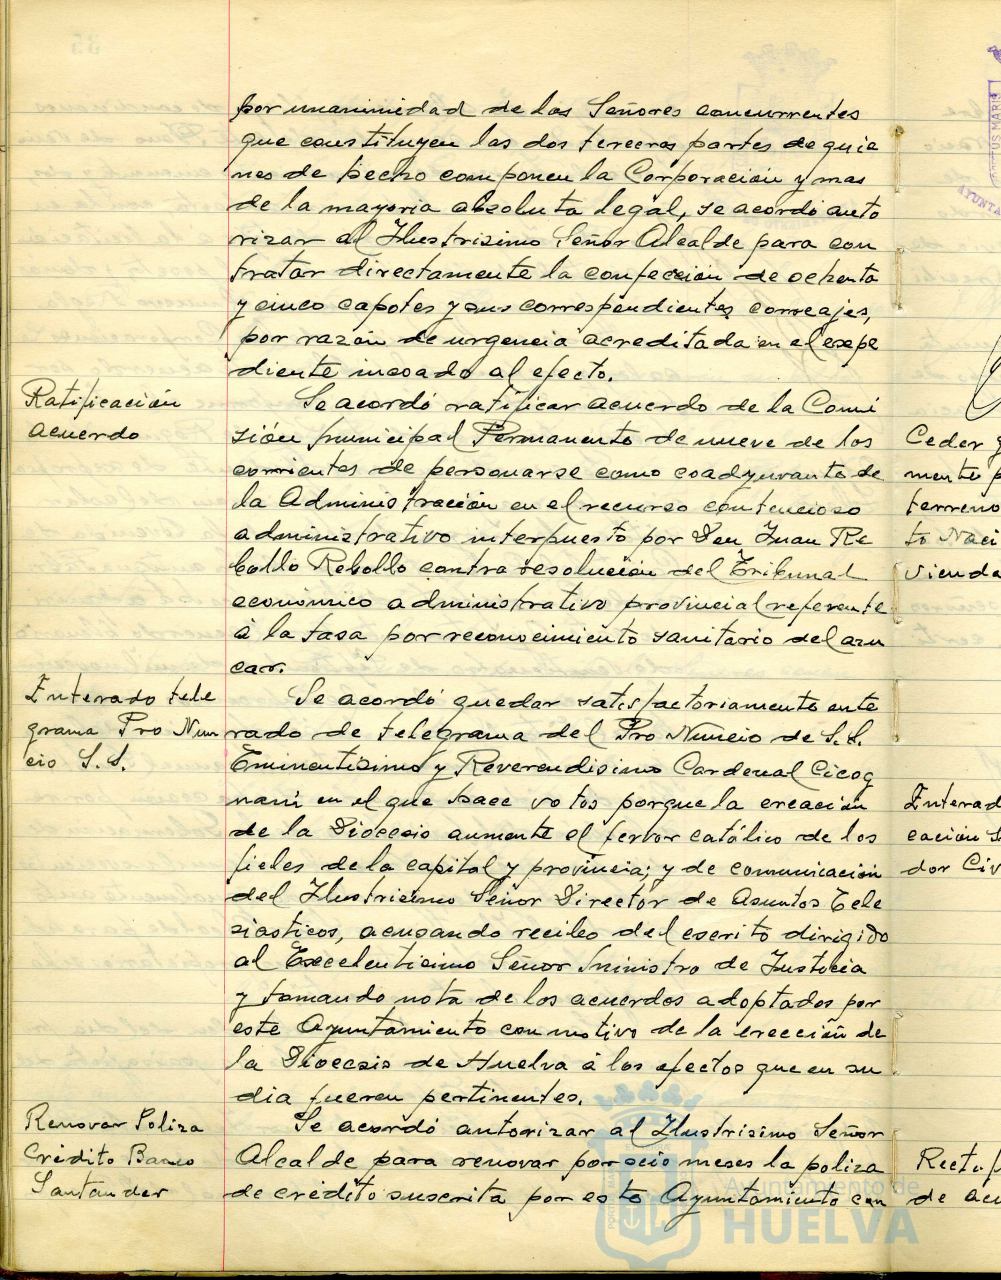 por unanimidad de los Señores concurrentes
que constituyen las dos terceras partes de quie
nes de hecho componen la Corporación y mas
de la mayoria absoluta legal, se acordó auto
rizar al Ilustrisimo Señor Alcalde para con
tratar directamente la confección de ochenta
y cinco capotes y sus correspondientes correajes,
por razón de urgencia acreditada en el expe
diente incoado al efecto.
Ratificación
acuerdo
Se acordó ratificar acuerdo de la Comi
sión municipal Permanente de nueve de los
corrientes de personarse como coadyuvante de
la Administración en el recurso contencioso
administrativo interpuesto por Don Juan Re
bollo Rebollo contra resolución del Tribunal
económico administrativo provincial referente
á la tasa por reconocimiento sanitario del azu
car.
Enterado tele
grama Pro Nun
cio S.S.
Se acordó quedar satisfactoriamente ente
rado de telegrama del Pro Nuncio de S.S.
Eminentisimo y Reverendisimo Cardenal Cicog
nani en el que hace votos porque la creación
de la Diocesis aumente el fervor católico de los
fieles de la capital y provincia; y de comunicación
del Ilustrisimo Señor Director de Asuntos Ecle
siasticos, acusando recibo del escrito dirigido
al Excelentisimo Señor Ministro de Justicia
y tomando nota de los acuerdos adoptados por
este Ayuntamiento con motivo de la erección de
la Diocesis de Huelva á los efectos que en su
dia fueren pertinentes.
Renovar Poliza
Crédito Banco
Santander
Se acordó autorizar al Ilustrisimo Señor
Alcalde para renovar por seis meses la poliza
de crédito suscrita por esto Ayuntamiento con
Ceder
mente p
terreno
to Naci
vienda
Enterad
cación
dor Civ
Rectif
de acu
Ayuntamiento de
HUELVA